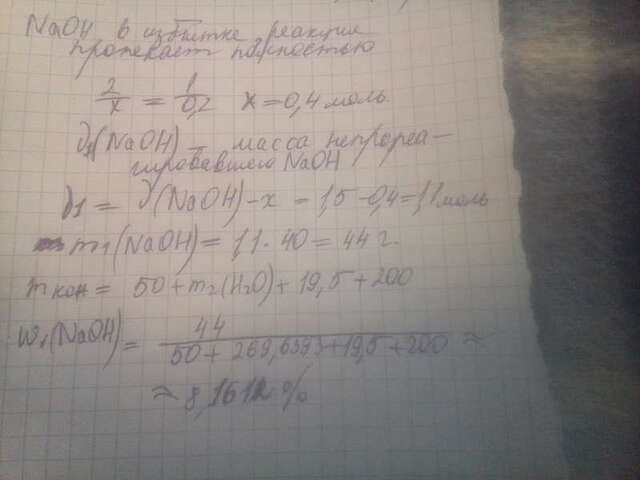 NaOH в избытке реакция
протекает полностью
2/x = 1/0,2 x = 0,4 моль.
ν₁(NaOH) – масса непрореа-
гировавшего NaOH
ν1 = ν(NaOH) – x = 1,5 – 0,4 = 1,1 моль
m₁(NaOH) = 1,1 · 40 = 44 г.
m кон = 50 + m₂(H₂O) + 19,5 + 200
w₁(NaOH) = 44 / 50 + 269,6393 + 19,5 + 200 ≈
≈ 8,1612 %